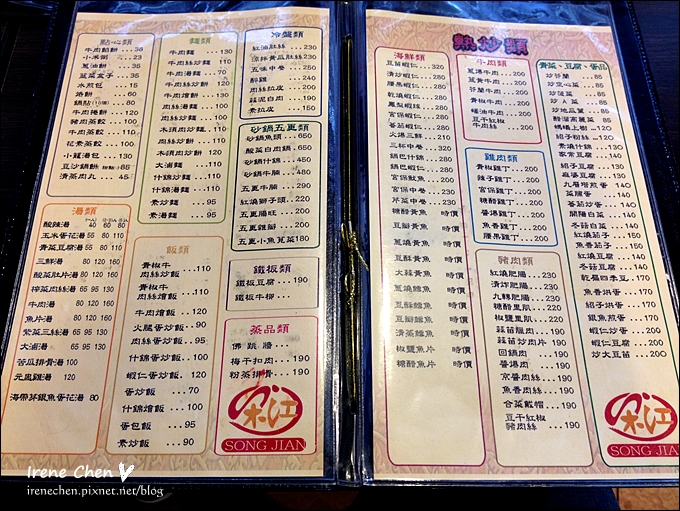 點心類
牛肉餡餅 ... 35
小米粥 ... 25
蔥油餅
韭菜盒子 ... 35
水煎包 ... 15
烙餅 ... 60
牛肉捲餅
豬肉蒸餃 ... 110
牛肉蒸餃 ... 130
花素蒸餃
小籠湯包
清蒸肉丸 ... 45
湯類
酸辣湯 40 60 80
玉米蛋花湯 55 80 110
青菜豆腐湯 55 80 110
三鮮湯 80 120 160
酸菜肚片湯 80 120 160
榨菜肉絲湯 65 95 130
牛肉湯 80 120 160
魚片湯 80 120 160
紫菜三絲湯 65 95 130
大滷湯 65 95 130
苦瓜排骨湯 120
元盅雞湯 120
海帶芽銀魚蛋花湯 200
麵類
牛肉麵 ... 130
牛肉絲炒麵 ... 110
牛肉湯麵 ... 70
牛肉炒餅 ... 110
牛肉燴餅 ... 130
肉絲湯麵 ... 110
肉絲炒麵 ... 110
木須肉炒麵 ... 110
木須肉炒餅 ... 110
大滷麵 ... 110
什錦炒麵 ... 110
什錦湯麵 ... 110
素炒麵 ... 90
素湯麵 ... 90
飯類
青椒牛
肉絲炒飯 ... 110
青椒牛
肉絲燴飯 ... 110
牛肉燴飯 ... 130
火腿蛋炒飯 .. 90
肉絲蛋炒飯 .. 90
什錦蛋炒飯 .. 110
蝦仁蛋炒飯 .. 120
蛋炒飯 ... 70
什錦燴飯 ... 110
蛋包飯 ... 95
素炒飯 ... 90
冷盤類
紅油肚絲 ... 230
涼拌黃瓜肚絲 .. 230
五味中卷 ... 220
醉雞 ... 220
肉絲拉皮 ... 200
蒜泥白肉 ... 200
素拉皮 ... 150
砂鍋五更類
砂鍋魚頭 ... 650
酸菜白肉鍋 ... 500
砂鍋什錦 ... 450
砂鍋牛腩 ... 480
五更牛腩 ... 350
紅燒獅子頭 .. 220
五更腸旺 ... 200
五更雞翅 ... 200
五更小魚莧菜 180
鐵板類
鐵板豆腐 ... 190
鐵板牛柳
蒸品類
佛跳牆
梅干扣肉 ... 190
粉蒸排骨 ... 190
宋江
SONG JIAN
熱炒類
海鮮類
豆苗蝦仁 ... 320
清炒蝦仁
腰果蝦仁
乾燒蝦仁
鳳梨蝦球
宮保蝦仁
番茄蝦仁
火爆三鮮
三杯中卷
鍋巴什錦
鍋巴蝦仁
宮保魷魚
宮保中卷
芹菜中卷
糖醋黃魚 時價
豆瓣黃魚 時價
蔥燒黃魚 時價
乾燒黃魚 時價
大蒜黃魚 時價
蔥燒鯉魚 時價
豆瓣鯉魚 時價
清蒸鱈魚 時價
椒鹽魚片 時價
糖醋魚片 時價
牛肉類
蔥爆牛肉 ... 200
薑黃牛肉 ... 200
芥蘭牛肉 ... 200
青椒牛肉 ... 200
蠔油牛肉 ... 200
豆干紅椒
牛肉絲 ... 200
雞肉類
青椒雞丁 ... 200
辣子雞丁 ... 200
宮保雞丁 ... 200
糖醋雞丁 ... 200
醬爆雞丁 ... 200
魚香雞丁 ... 200
腰果雞丁 ... 200
豬肉類
紅燒肥腸 ... 200
清炒肥腸 ... 200
九轉肥腸 ... 200
糖醋里肌 ... 200
椒鹽里肌 ... 200
蒜苗臘肉 ... 200
蒜苗炒肉片 .. 190
回鍋肉 ... 190
醬爆肉 ... 190
京醬肉絲 ... 190
魚香肉絲 ... 190
合菜戴帽 ... 190
豆干紅椒
豬肉絲 ... 190
青菜、豆腐、蛋品
炒芥蘭 ... 85
炒空心菜 ... 85
炒菠菜 ... 85
炒A菜 ... 85
炒地瓜葉
醋溜高麗菜
螞蟻上樹
紹子粉絲
家常豆腐
紹子豆腐
麻婆豆腐
九層塔煎蛋
菜脯蛋
番茄炒蛋 ... 140
開陽白菜 ... 140
冬菇白菜 ... 150
紅燒茄子 ... 150
魚香茄子 ... 150
紅燒豆腐 ... 150
冬菇豆腐 ... 150
乾扁四季豆 .. 150
魚香烘蛋 ... 200
紹子烘蛋 ... 200
銀魚煎蛋 ... 200
蝦仁炒蛋 ... 200
蝦仁豆腐 ... 200
炒大豆苗 ... 200
宋江
SONG JIAN
Irene Chen
irenechen.pixnet.net/blog